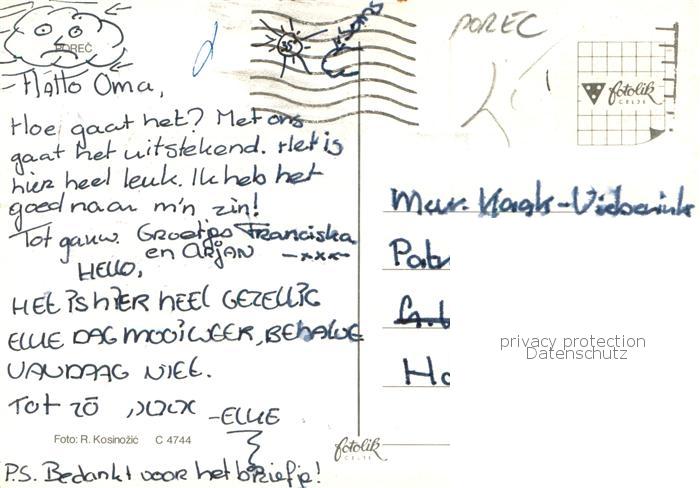 POREČ
35°
POREC
Hallo Oma,
Hoe gaat het? Met ons
gaat het uitstekend. Het is
hier heel leuk. Ik heb het
goed naar m'n zin!
Tot gauw. Groetjes Franciska
en Arjan -xxx-
HELLO,
HET IS HIER HEEL GEZELLIG
ELKE DAG MOOI WEER, BEHALVE
VANDAAG NIET.
TOT ZO XXX -ELLIE
Foto: R. Kosinožić C 4744
P.S. Bedankt voor het briefje!
fotolik
CELJE
fotolik
CELJE
Mevr.
privacy protection
Datenschutz